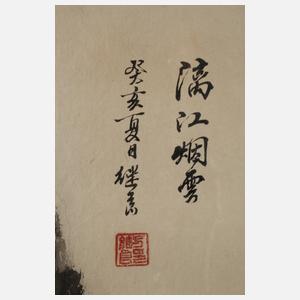 漓江烟雲
癸亥夏日继